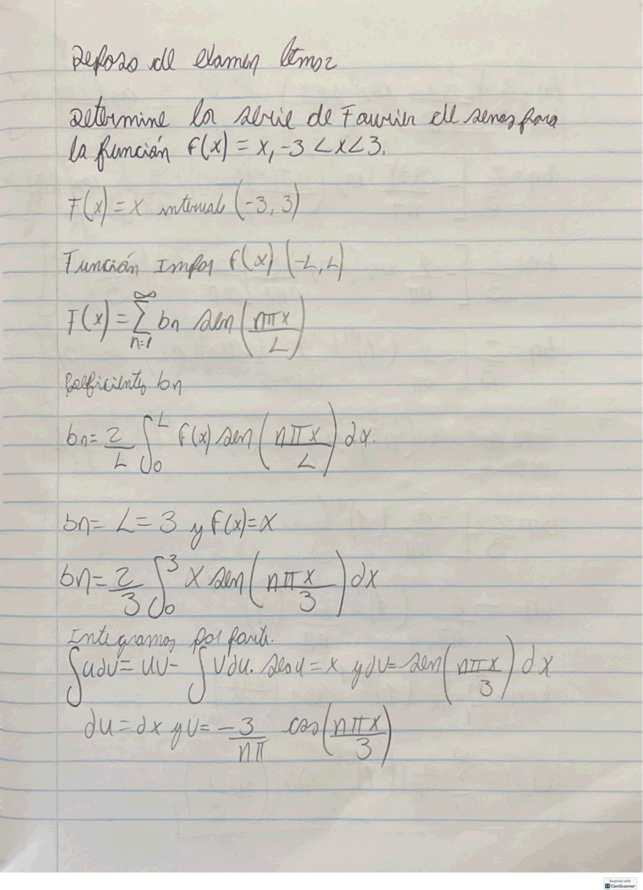 Repaso de examen tema 2
Determine la serie de Fourier de senos para
la función f(x) = x, -3 < x < 3.
F(x) = x interval (-3, 3)
Función Impar f(x) (-L, L)
F(x) = ∑_{n=1}^{∞} bn sen(nπx/L)
Coeficientes bn
bn = 2/L ∫_0^L f(x) sen(nπx/L) dx.
bn = L = 3 y f(x) = x
bn = 2/3 ∫_0^3 x sen(nπx/3) dx
Integramos por parte.
∫udv = uv - ∫vdu. sea u = x y dv = sen(nπx/3) dx
du = dx y v = -3/nπ cos(nπx/3)
Scanned with
CamScanner